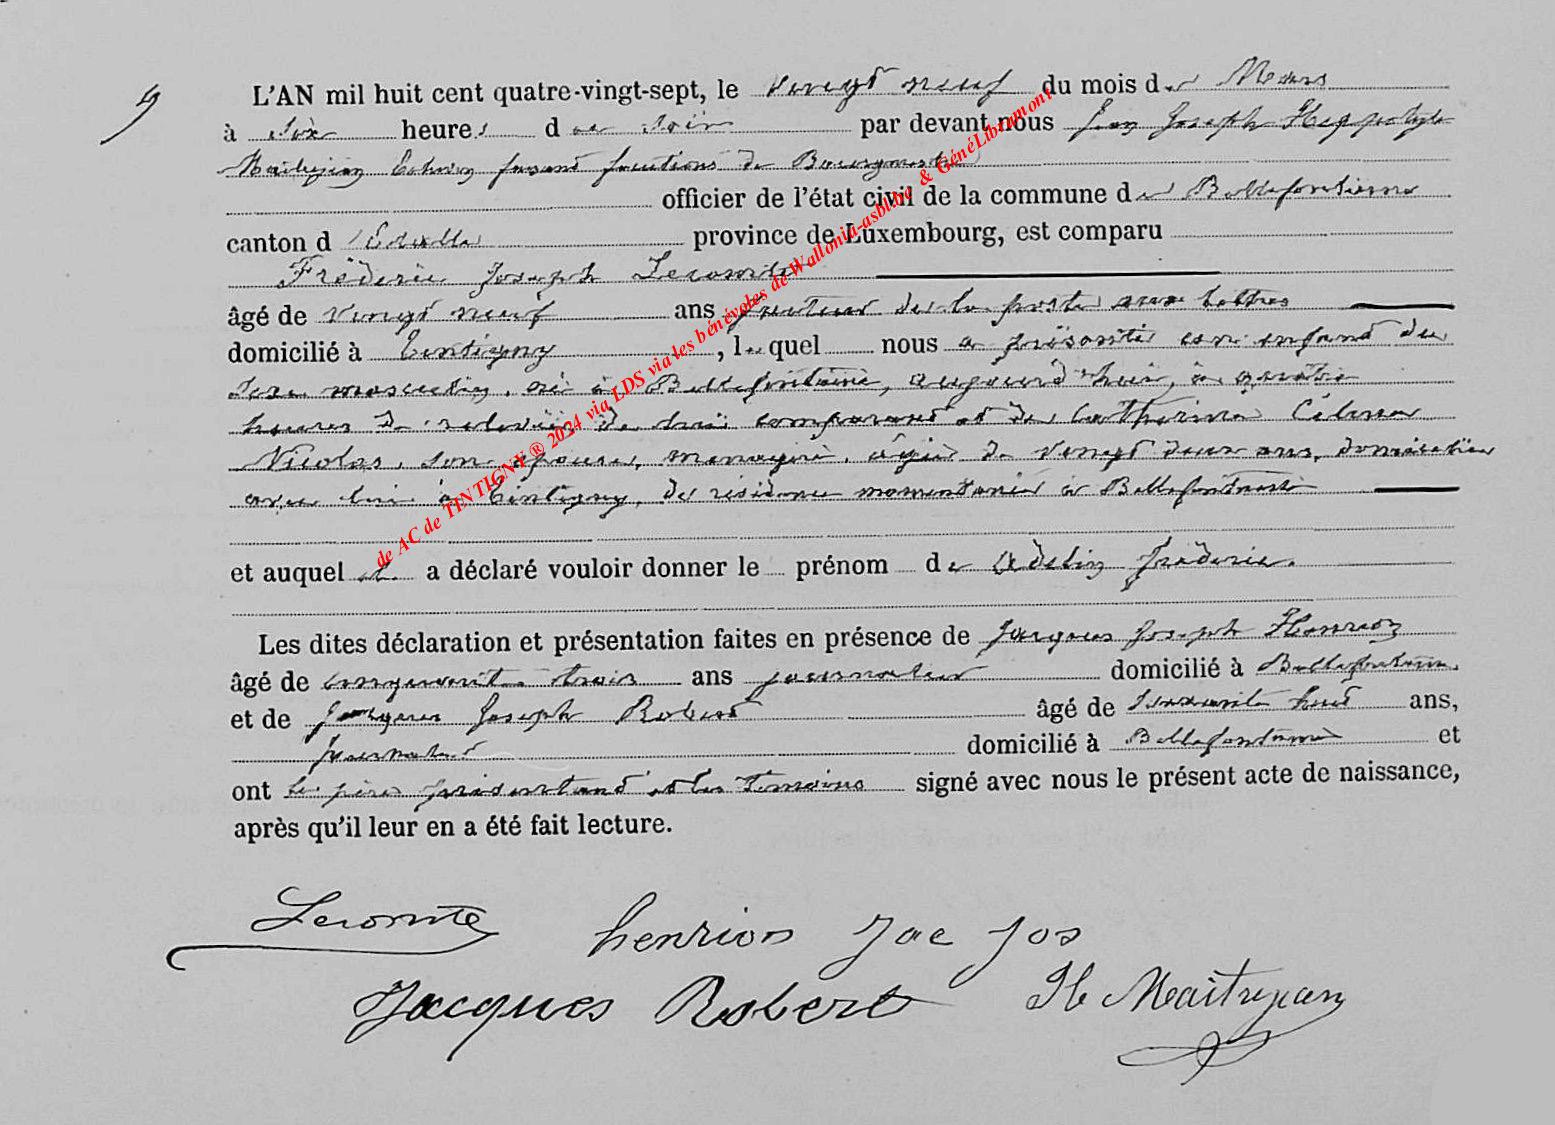 9
L'AN mil huit cent quatre-vingt-sept, le vingt neuf du mois de Mars
à six heures du soir par devant nous Jean Joseph Hyppolyte
Maitrejean Echevin faisant fonctions de Bourgmestre
officier de l'état civil de la commune de Bellefontaine
canton d'Etalle province de Luxembourg, est comparu
Fréderic Joseph Lecomte
âgé de vingt neuf ans facteur de la poste aux lettres
domicilié à Tintigny, lequel nous a présenté un enfant du
sexe masculin, né à Bellefontaine, aujourd'hui, à quatre
heures de relevée, de lui comparant et de Catherine Célina
Nicolas, son épouse, menagère, agée de vingt deux ans, domiciliée
avec lui à Tintigny, de résidence momentanée à Bellefontaine
et auquel il a déclaré vouloir donner le prénom de Adelin Fréderic.
Les dites déclaration et présentation faites en présence de Jacques Joseph Henrion
âgé de cinquante trois ans journalier domicilié à Bellefontaine
et de Jacques Joseph Robert âgé de soixante huit ans,
journalier domicilié à Bellefontaine et
ont le père présentant et les témoins signé avec nous le présent acte de naissance,
après qu'il leur en a été fait lecture.
Lecomte henrion Jac Jos
Jacques Robert H Maitrejean
de AC de TINTIGNY ® 2024 via LDS via les bénévoles de Wallonia-asbl.be & GénéLibramont